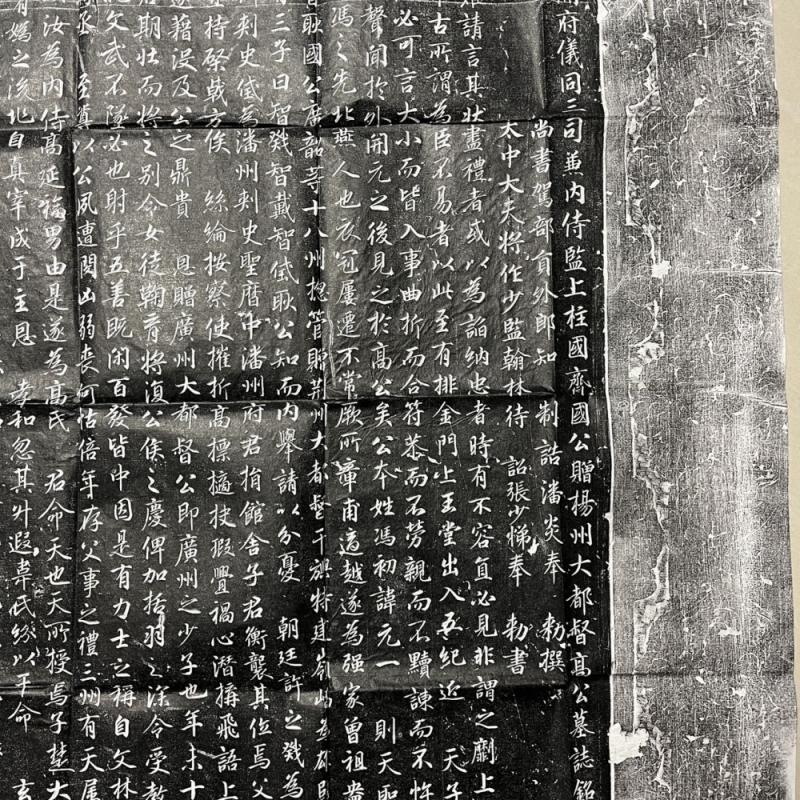 府儀同三司兼內侍監上柱國齊國公贈揚州大都督高公墓誌銘
尚書駕部員外郎知 制誥潘炎奉 勅撰
太中大夫將作少監翰林待 詔張少悌奉 勅書
請言其狀盡禮者或以為諂納忠者時有不容直必見非謂之劘上
古所謂為臣不易者以此至有排金門上玉堂出入五紀近 天子
必可言大小而皆入事曲折而合符恭而不勞親而不黷諫而不忤
聲聞於外開元之後見之於高公矣公本姓馮初諱元一 則天聖
馮之先北燕人也衣冠屢遷不常厥所章甫適越遂為强家曾祖盎
耿國公廣韶等十八州揔管贈荊州大都督干旟特建嶺
三子曰智戣智戴智玳耿公知而內舉請以分憂 朝廷許之戣為
刺史玳為潘州刺史聖曆中潘州府君捐館舍子君衡襲其位焉父
持棨戟方俟 絲綸按察使摧折高標擿抉瑕舋禍心潛搆飛語上
遂籍沒及公之鼎貴 恩贈廣州大都督公即廣州之少子也年未十
期壯而將之別令女徒鞠育將復公侯之慶俾加括羽之深令受教
文武不墜必也射乎五善既閑百發皆中因是有力士之稱自文林
丞至 以公夙遭閔凶弱喪何怙倍年存父事之禮三州有天屬
汝為內侍高延福男由是遂為高氏 君命天也天所授焉子楚大
有媯之後此自真宰成于主恩 孝和忽其升遐韋氏紛以干命 玄